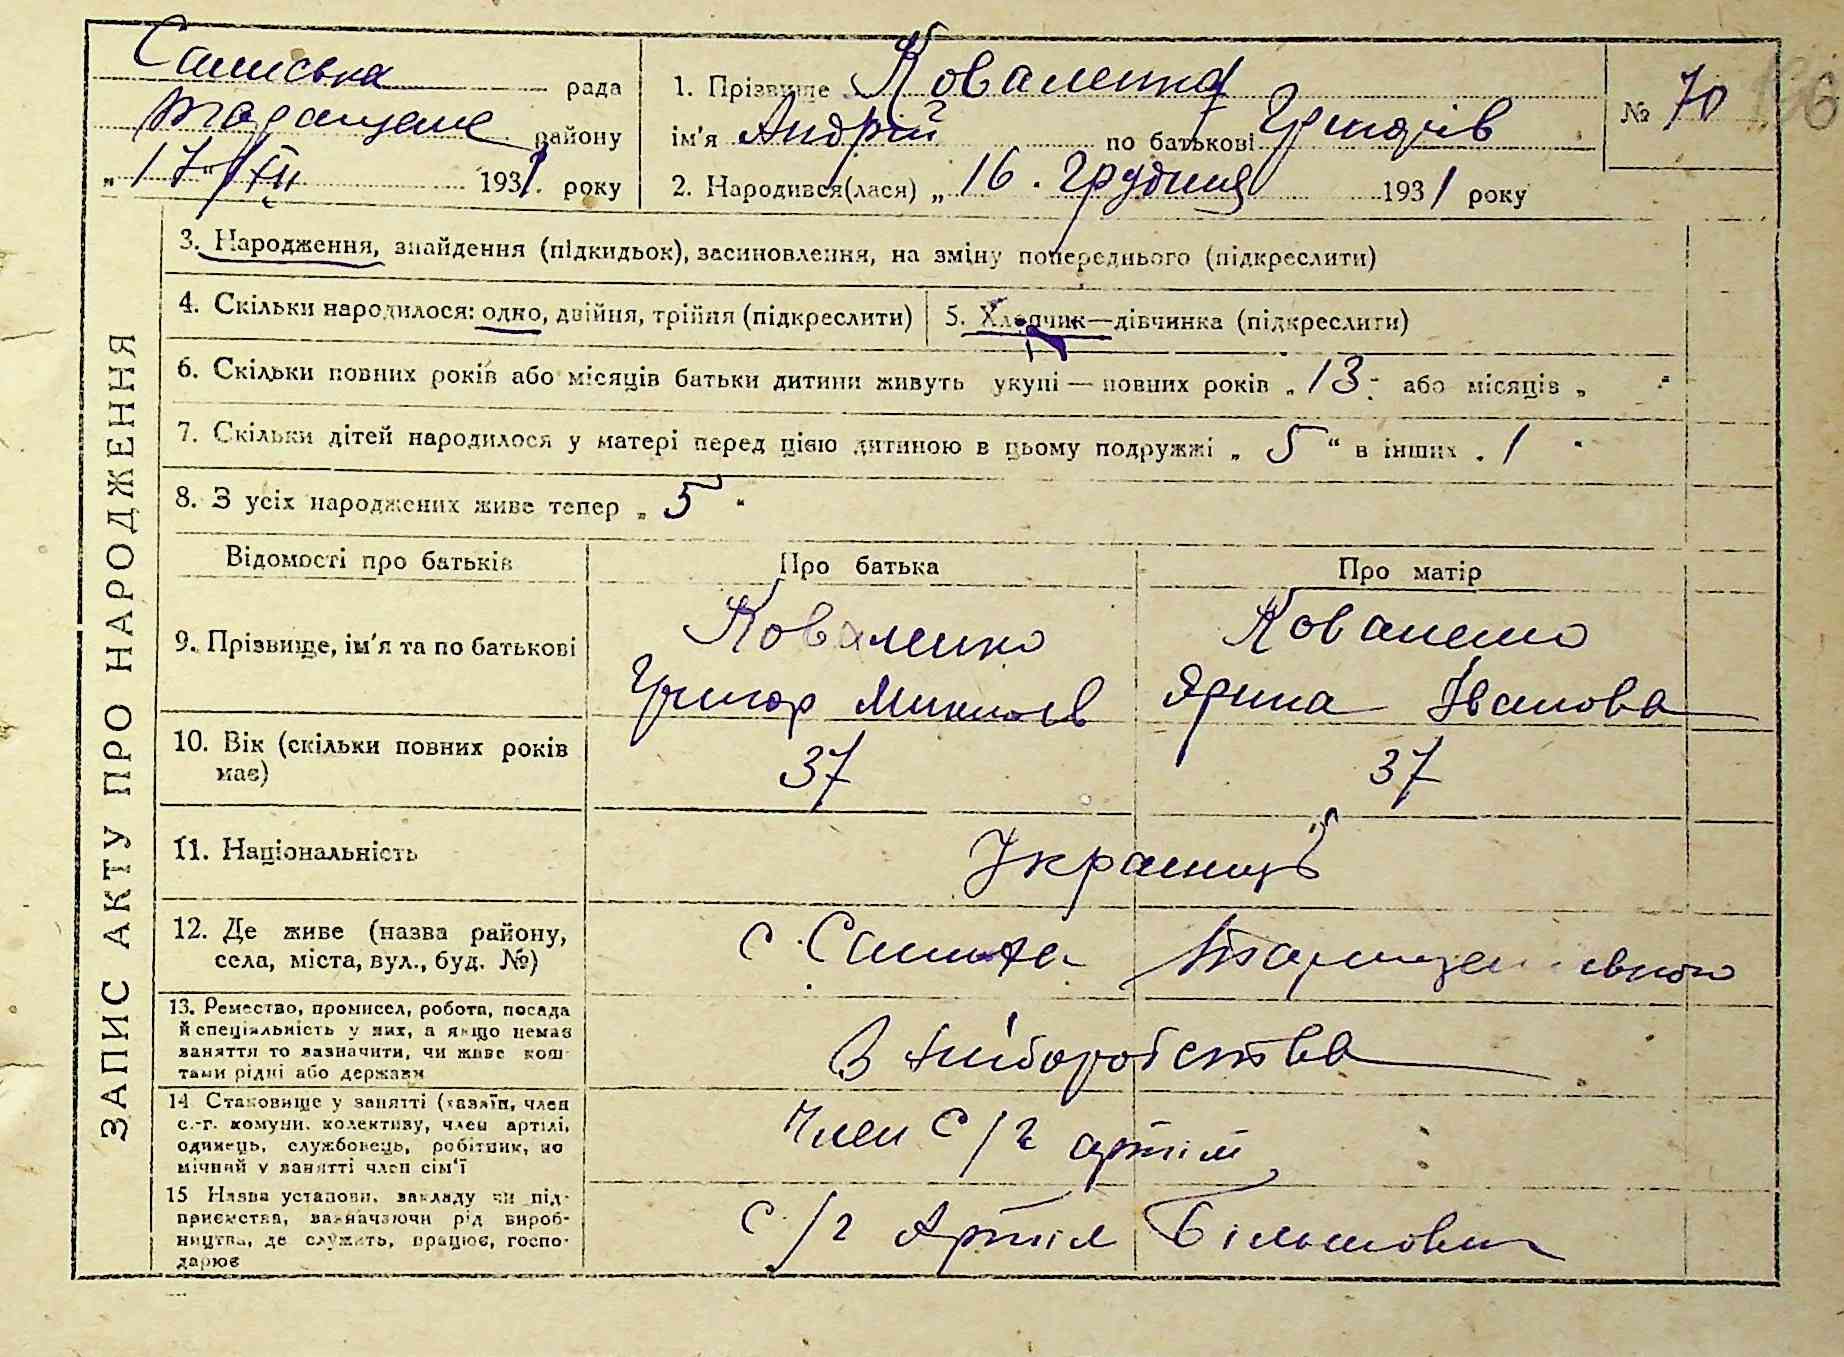 рада
району
„17“/XII 1931 року
1. Прізвище Коваленко
ім'я Андрій по батькові Григорів
2. Народився(лася) „16. Грудня 1931 року
№ 70
ЗАПИС АКТУ ПРО НАРОДЖЕННЯ
3. Народження, знайдення (підкидьок), засиновлення, на зміну попереднього (підкреслити)
4. Скільки народилося: одно, двійня, трійня (підкреслити)
5. Хлопчик—дівчинка (підкреслити)
6. Скільки повних років або місяців батьки дитини живуть укупі — повних років „13“ або місяців „ “
7. Скільки дітей народилося у матері перед цією дитиною в цьому подружжі „5“ в інших „1“
8. З усіх народжених живе тепер „5“
Відомості про батьків Про батька Про матір
9. Прізвище, ім'я та по батькові
Коваленко Коваленко
Григор Ярина Іванова
10. Вік (скільки повних років
має)
37 37
11. Національність
Українці
12. Де живе (назва району,
села, міста, вул., буд. №)
с.
13. Ремество, промисел, робота, посада
й спеціяльність у них, а якщо немає
заняття то зазначити, чи живе кош-
тами рідні або держави
В хліборобства
14 Становище у занятті (хазяїн, член
с.-г. комуни, колективу, член артілі,
одинець, службовець, робітник, по
мічний у занятті член сім'ї
Член с/г артілі
15 Назва установи, закладу чи під-
приємства, зазначаючи рід вироб-
ництва, де служить, працює, госпо-
дарює
с/г Артіл Більшовик